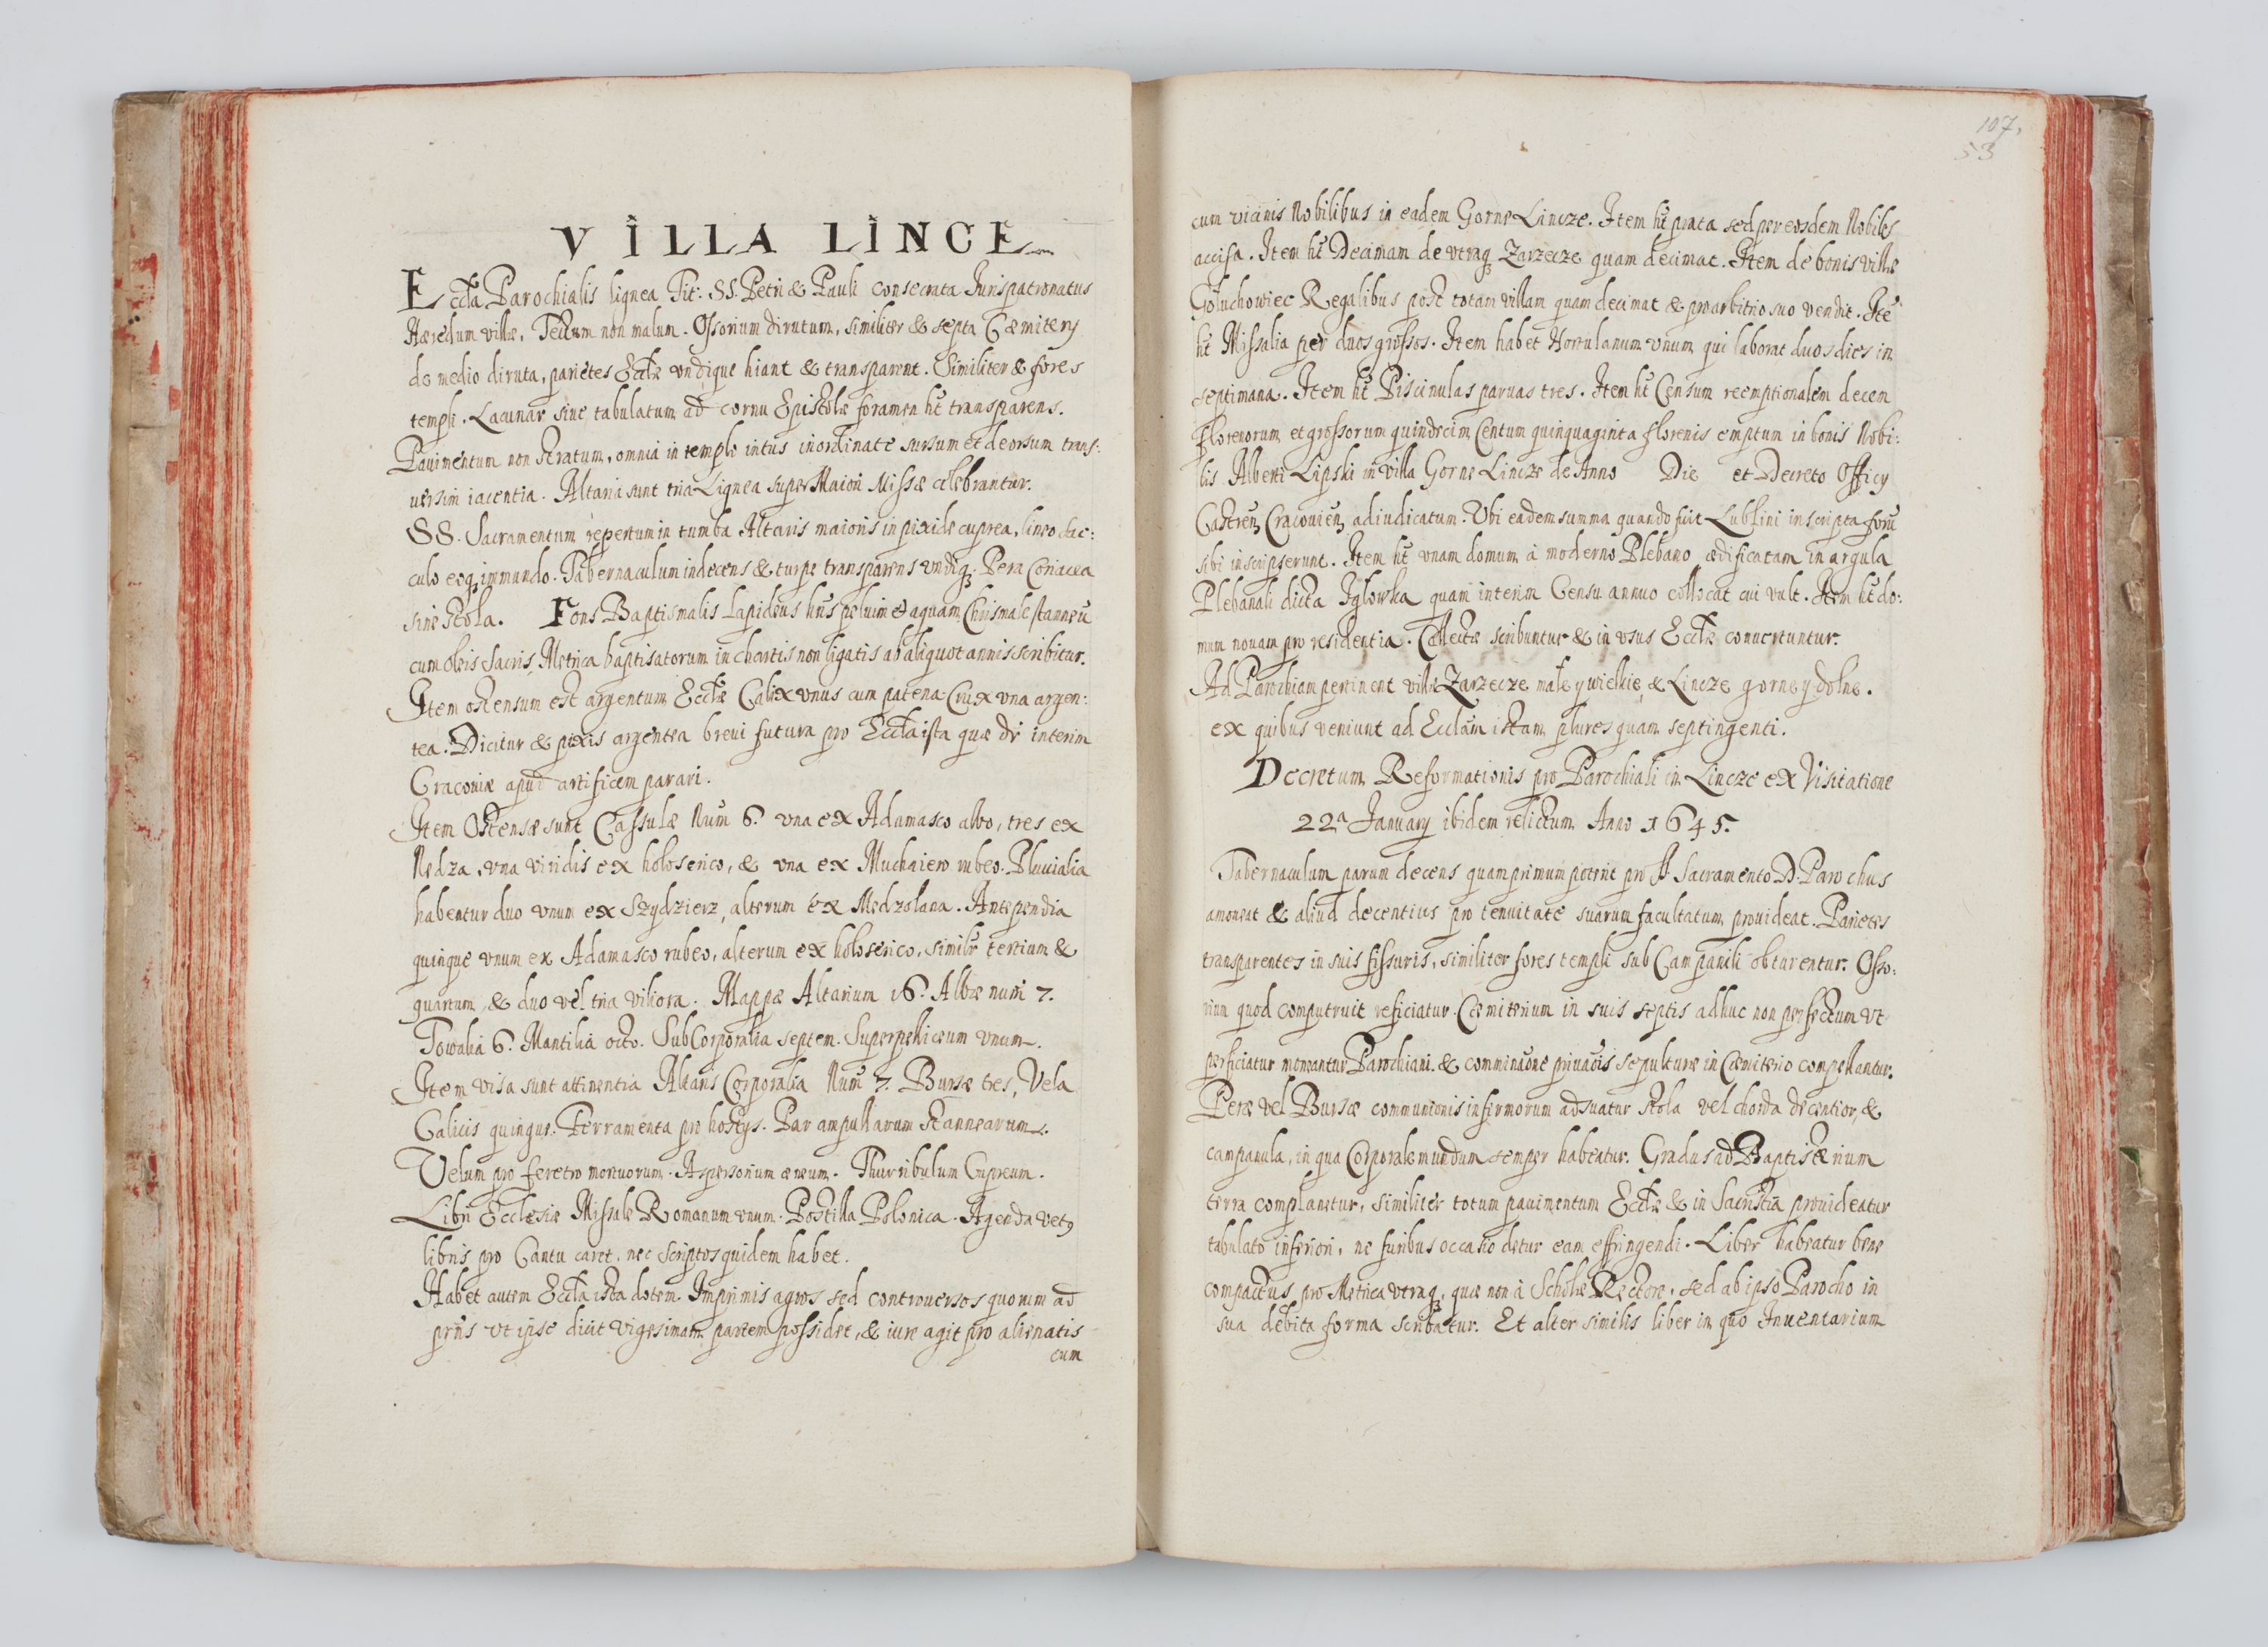 VILLA LINCE
Eccła Parochialis lignea Tit: SS. Petri & Pauli consecrata Iurispatronatus
Hæredum villæ, Tectum non malum. Ossorium dirutum, similiter & septa Cæmiterÿ
de medio diruta, parietes Eccłæ vndique hiant & transparent. Similiter & fores
templi. Lacunar siue tabulatum ad cornu Epistolæ foramen ht transparens.
Pauimentum non stratum, omnia in templo intus inordinate sursum et deorsum trans:
uersim iacentia. Altaria sunt tria Lignea super Maiori Missæ celebrantur.
SS. Sacramentum repertum in tumba Altaris maioris in pixide cuprea, lineo sac:
culo eoq; immundo. Tabernaculum indecens & turpe transparens vndiq; Pera Coriacea
sine stola. Fons Baptismalis Lapideus hns peluim et aquam, Chrismale stanneu
cum oleis sacris, Metrica baptisatorum in chartis non ligatis ab aliquot annis scribitur.
Item ostensum est argentum Eccłæ Calix vnus cum patena Crux vna argen:
tea. Dicitur & pixis argentea breui futura pro Eccła ista quæ dr interim
Cracouiæ apud artificem parari.
Item Ostensæ sunt Casulæ Num 6. vna ex Adamasco albo, tres ex
Nedza, vna viridis ex holoserico, & vna ex Muchaiero rubeo. Pluuialia
habentur duo vnum ex Szydzierz, alterum ex Medzolana. Antependia
quinque vnum ex Adamasco rubeo, alterum ex holoserico, similr tertium &
quartum, & duo vel tria viliora. Mappæ Altarium 16. Albæ num 7.
Towalia 6. Mantilia octo. SubCorporalia septem. Superpeliceum vnum.
Item visa sunt attinentia Altaris Corporalia Num 7. Bursæ tres, Vela
Calicis quinque. Ferramenta pro hostÿs. Par ampullarum stannearum.
Velum pro feretro mortuorum. Aspersorium æneum. Thurribulum Cupreum.
Libri Ecclesiæ Missale Romanum vnum. Postilla Polonica. Agenda vet9
libris pro Cantu caret, nec scriptos quidem habet.
Habet autem Eccła ista dotem. Imprimis agros sed controuersos quorum ad
prns vt ipse dicit vigesimam partem possidet, & iure agit pro alienatis
cum
107.
53
cum vicinis Nobilibus in eadem Gorne Lincze. Item ht prata sed per eosdem Nobiles
accisa. Item ht Decimam de vtraq; Zarzecze quam decimat. Item de bonis villæ
Goluchowiec Regalibus post totam villam quam decimat & pro arbitrio suo vendit. Ite
ht Missalia per duos grossos. Item habet Hortulanum vnum qui laborat duos dies in
septimana. Item ht Piscinulas paruas tres. Item ht Censum reemptionalem decem
Florenorum et grossorum quindecim Centum quinquaginta florenis emptum in bonis Nobi:
lis Alberti Lipski in villa Gorne Lincze de Anno Die et Decreto Officÿ
Castren; Cracouien; adiudicatum. Vbi eadem summa quando fuit Lublini inscripta foru
sibi inscripserunt. Item ht vnam domum à moderno Plebano ædificatam in argula
Plebanali dicta Iglowka quam interim Censu annuo collocat cui vult. Item ht do:
mum nouam pro residentia. Collectæ scribuntur & in vsus Eccłæ conuertuntur.
Ad Parochiam pertinent villæ Zarzecze małe y wielkie, & Lincze gorne y dolne.
ex quibus veniunt ad Ecclam istam plures quam septingenti.
Decretum Reformationis pro Parochiali in Lincze ex Visitatione
22a Ianuarÿ ibidem relictum Anno 1645.
Tabernaculum parum decens quam primum poterit pro Sacramento D. Parochus
amoueat & aliud decentius pro tenuitate suarum facultatum prouideat. Parietes
transparentes in suis fissuris, similiter fores templi sub Campanili obturentur. Osso:
rium quod computruit reficiatur. Cæmiterium in suis septis adhuc non perfectum vt
perficiatur moneantur Parochiani. & comminaone priuaois sepulturæ in Cæmiterio compellantur.
Peræ vel Bursæ communionis infirmorum adsuatur stola vel chorda decentior, &
campanula, in qua Corporale mundum semper habeatur. Gradus ad Baptisterium
terra complanetur, similiter totum pauimentum Eccłæ & in Sacristia prouideatur
tabulato inferiori, ne furibus occasio detur eam effringendi. Liber habeatur bene
compactus pro Metrica vtraq; quæ non à Scholæ Rectore, sed ab ipso Parocho in
sua debita forma scribatur. Et alter similis liber in quo Inuentarium